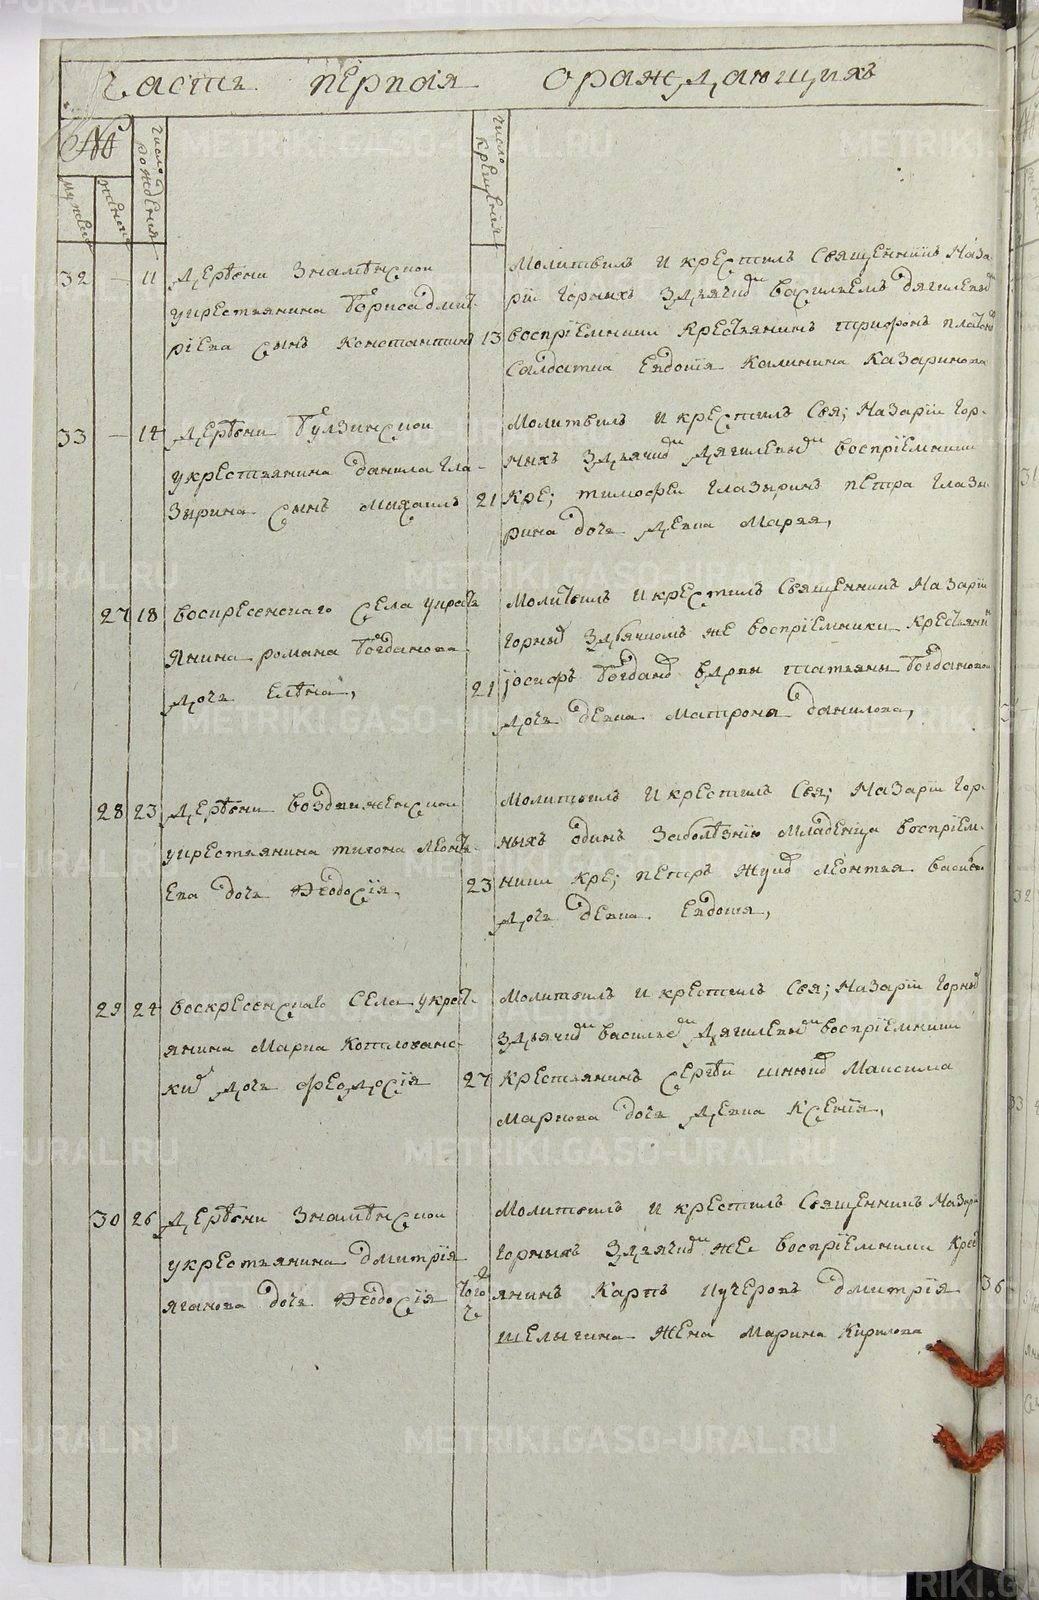 Часть первая ораждающихъ
№
мужеск
женск
число рождения
число крещения
32 — 11 Деревни Знаменской
у крестьянина Бориса Дмит-
риева сынъ Константинъ 13
Молитвилъ и крестилъ священникъ Наза-
рiй Горныхъ здьячкомъ Васильемъ Дягилевым
воспрiемники крестьянинъ Трифонъ
Салдатка Евдокiя Калинина Казаринова
33 — 14 Деревни Булзинской
у крестьянина Данила Гла-
зырина сынъ Михаилъ 21
Молитвилъ и крестилъ Свя; Назарiй Гор-
ныхъ здьячком Дягилевым воспрiемники
кре; Тимофей Глазыринъ Петра Глазы-
рина дочь девка Марья,
27 18 Воскресенскаго села у крест
янина Романа Богданова
дочь Елена, 21
Молитвилъ и крестилъ Священникъ Назарiй
Горных здьячкомъ же воспрiемники крестьянин
Iосифъ Богданов вдовы Татьяны Богдановой
дочь девка Матрона Данилова,
28 23 Деревни Воздвиженской
у крестьянина Тихона Леонть-
ева дочь Феодосiя 23
Молитвилъ и крестилъ Свя; Назарiй Гор-
ныхъ одинъ заболезнiю младенца воспрiем-
ники кре; Петръ Леонтья Васильев
дочь девка Евдокiя,
29 24 Воскресенскаго села у крест-
янина Марка Котловано-
ких дочь Феодосiя 27
Молитвилъ и крестилъ Свя; Назарiй Горных
здьячком Васильем Дягилевым воспрiемники
крестьянинъ Сергей Максима
Маркова дочь девка Ксенiя,
30 26 Деревни Знаменской
у крестьянина Дмитрiя
Яганова дочь Феодосiя тогож ч
Молитвилъ и крестилъ священникъ Назарi
Горныхъ здьячком же воспрiемники крест
янинъ Карпъ Кучеровъ Дмитрiя
Шелыгина жена Марина Кирилова
36
METRIKI.GASO-URAL.RU